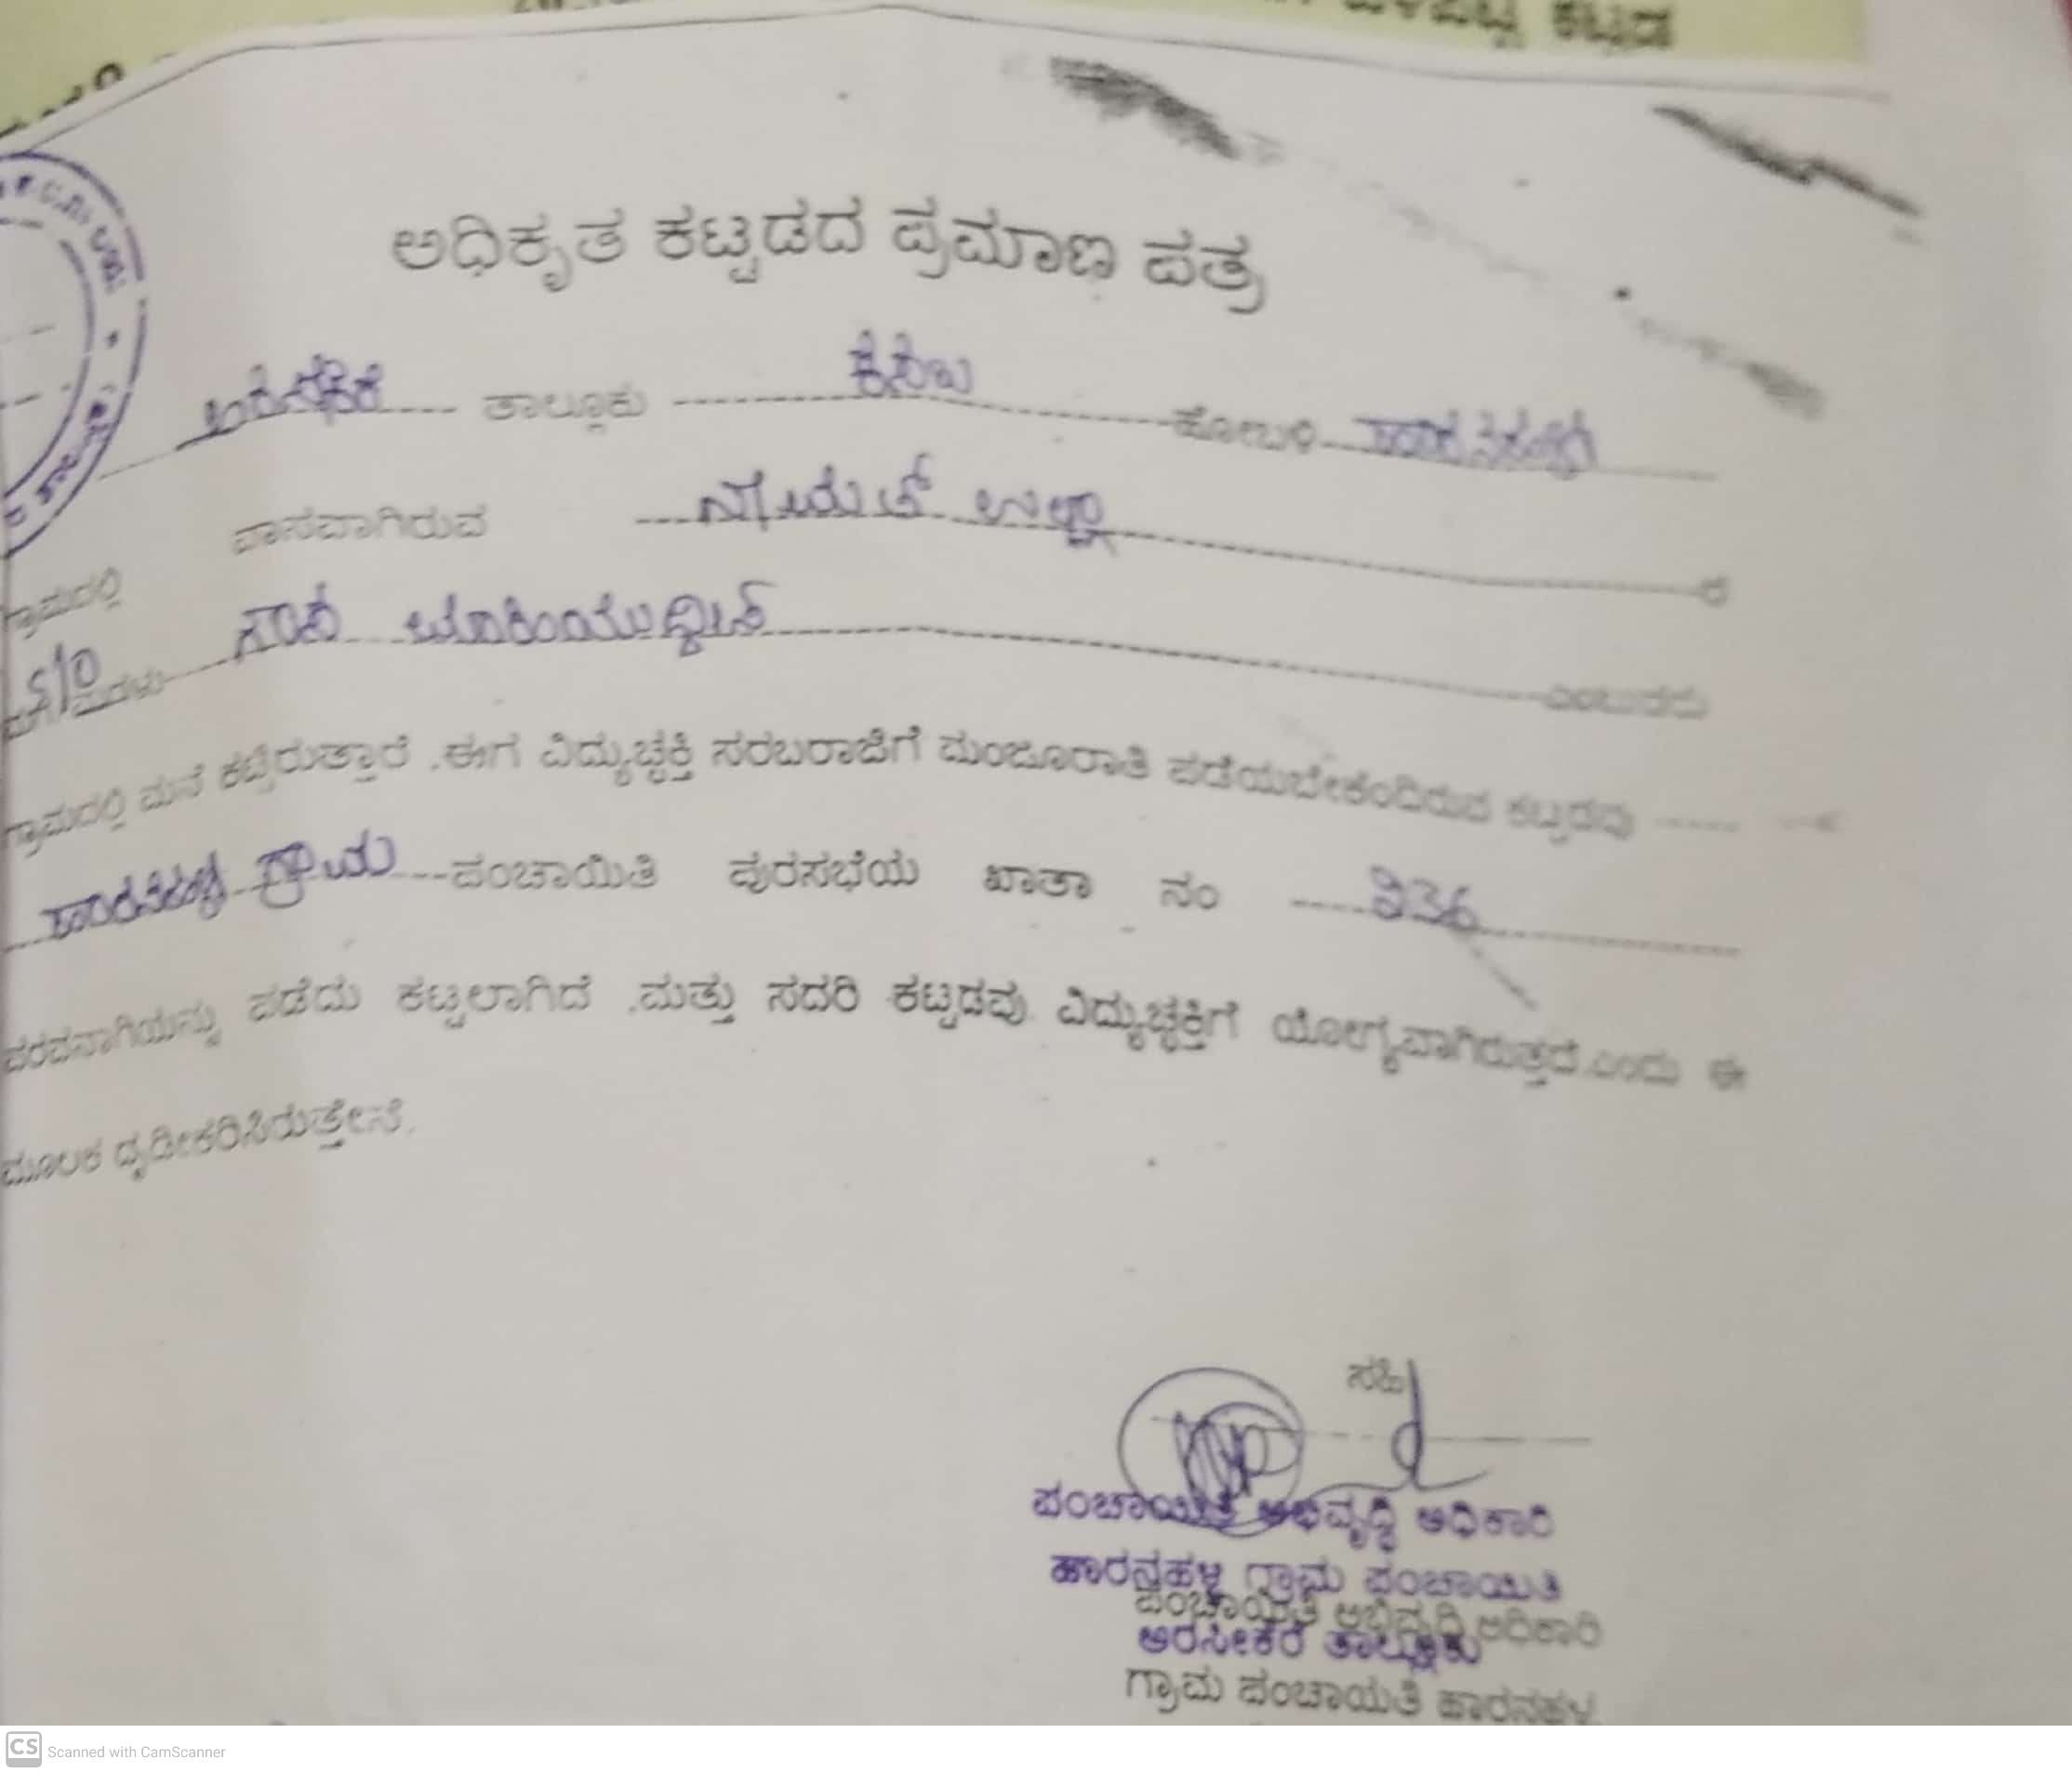 ಕಟ್ಟಡ
ಅಧಿಕೃತ ಕಟ್ಟಡದ ಪ್ರಮಾಣ ಪತ್ರ
ಅರಸೀಕೆರೆ ತಾಲ್ಲೂಕು ಕಸಬಾ ಹೋಬಳಿ ಹಾರನಹಳ್ಳಿ
ಗ್ರಾಮದಲ್ಲಿ ವಾಸವಾಗಿರುವ ನ್ಯಾಮತ್ ಉಲ್ಲಾ ರ
S/O ಎಂಬುವರು
ಗ್ರಾಮದಲ್ಲಿ ಮನೆ ಕಟ್ಟಿರುತ್ತಾರೆ .ಈಗ ವಿದ್ಯುಚ್ಛಕ್ತಿ ಸರಬರಾಜಿಗೆ ಮಂಜೂರಾತಿ ಪಡೆಯಬೇಕೆಂದಿರುವ ಕಟ್ಟಡವು
ಹಾರನಹಳ್ಳಿ ಗ್ರಾಮ ಪಂಚಾಯಿತಿ ಪುರಸಭೆಯ ಖಾತಾ ನಂ 936
ಪರವಾನಾಗಿಯನ್ನು ಪಡೆದು ಕಟ್ಟಲಾಗಿದೆ .ಮತ್ತು ಸದರಿ ಕಟ್ಟಡವು ವಿದ್ಯುಚ್ಛಕ್ತಿಗೆ ಯೋಗ್ಯವಾಗಿರುತ್ತದೆ.ಎಂದು ಈ
ಮೂಲಕ ದೃಡೀಕರಿಸಿರುತ್ತೇನೆ.
ಸಹಿ
ಪಂಚಾಯಿತಿ ಅಭಿವೃದ್ಧಿ ಅಧಿಕಾರಿ
ಹಾರನಹಳ್ಳಿ ಗ್ರಾಮ ಪಂಚಾಯಿತಿ
ಪಂಚಾಯಿತಿ ಅಭಿವೃದ್ಧಿ ಅಧಿಕಾರಿ
ಅರಸೀಕೆರೆ ತಾಲ್ಲೂಕು
ಗ್ರಾಮ ಪಂಚಾಯತಿ ಹಾರನಹಳ್ಳಿ
CS Scanned with CamScanner